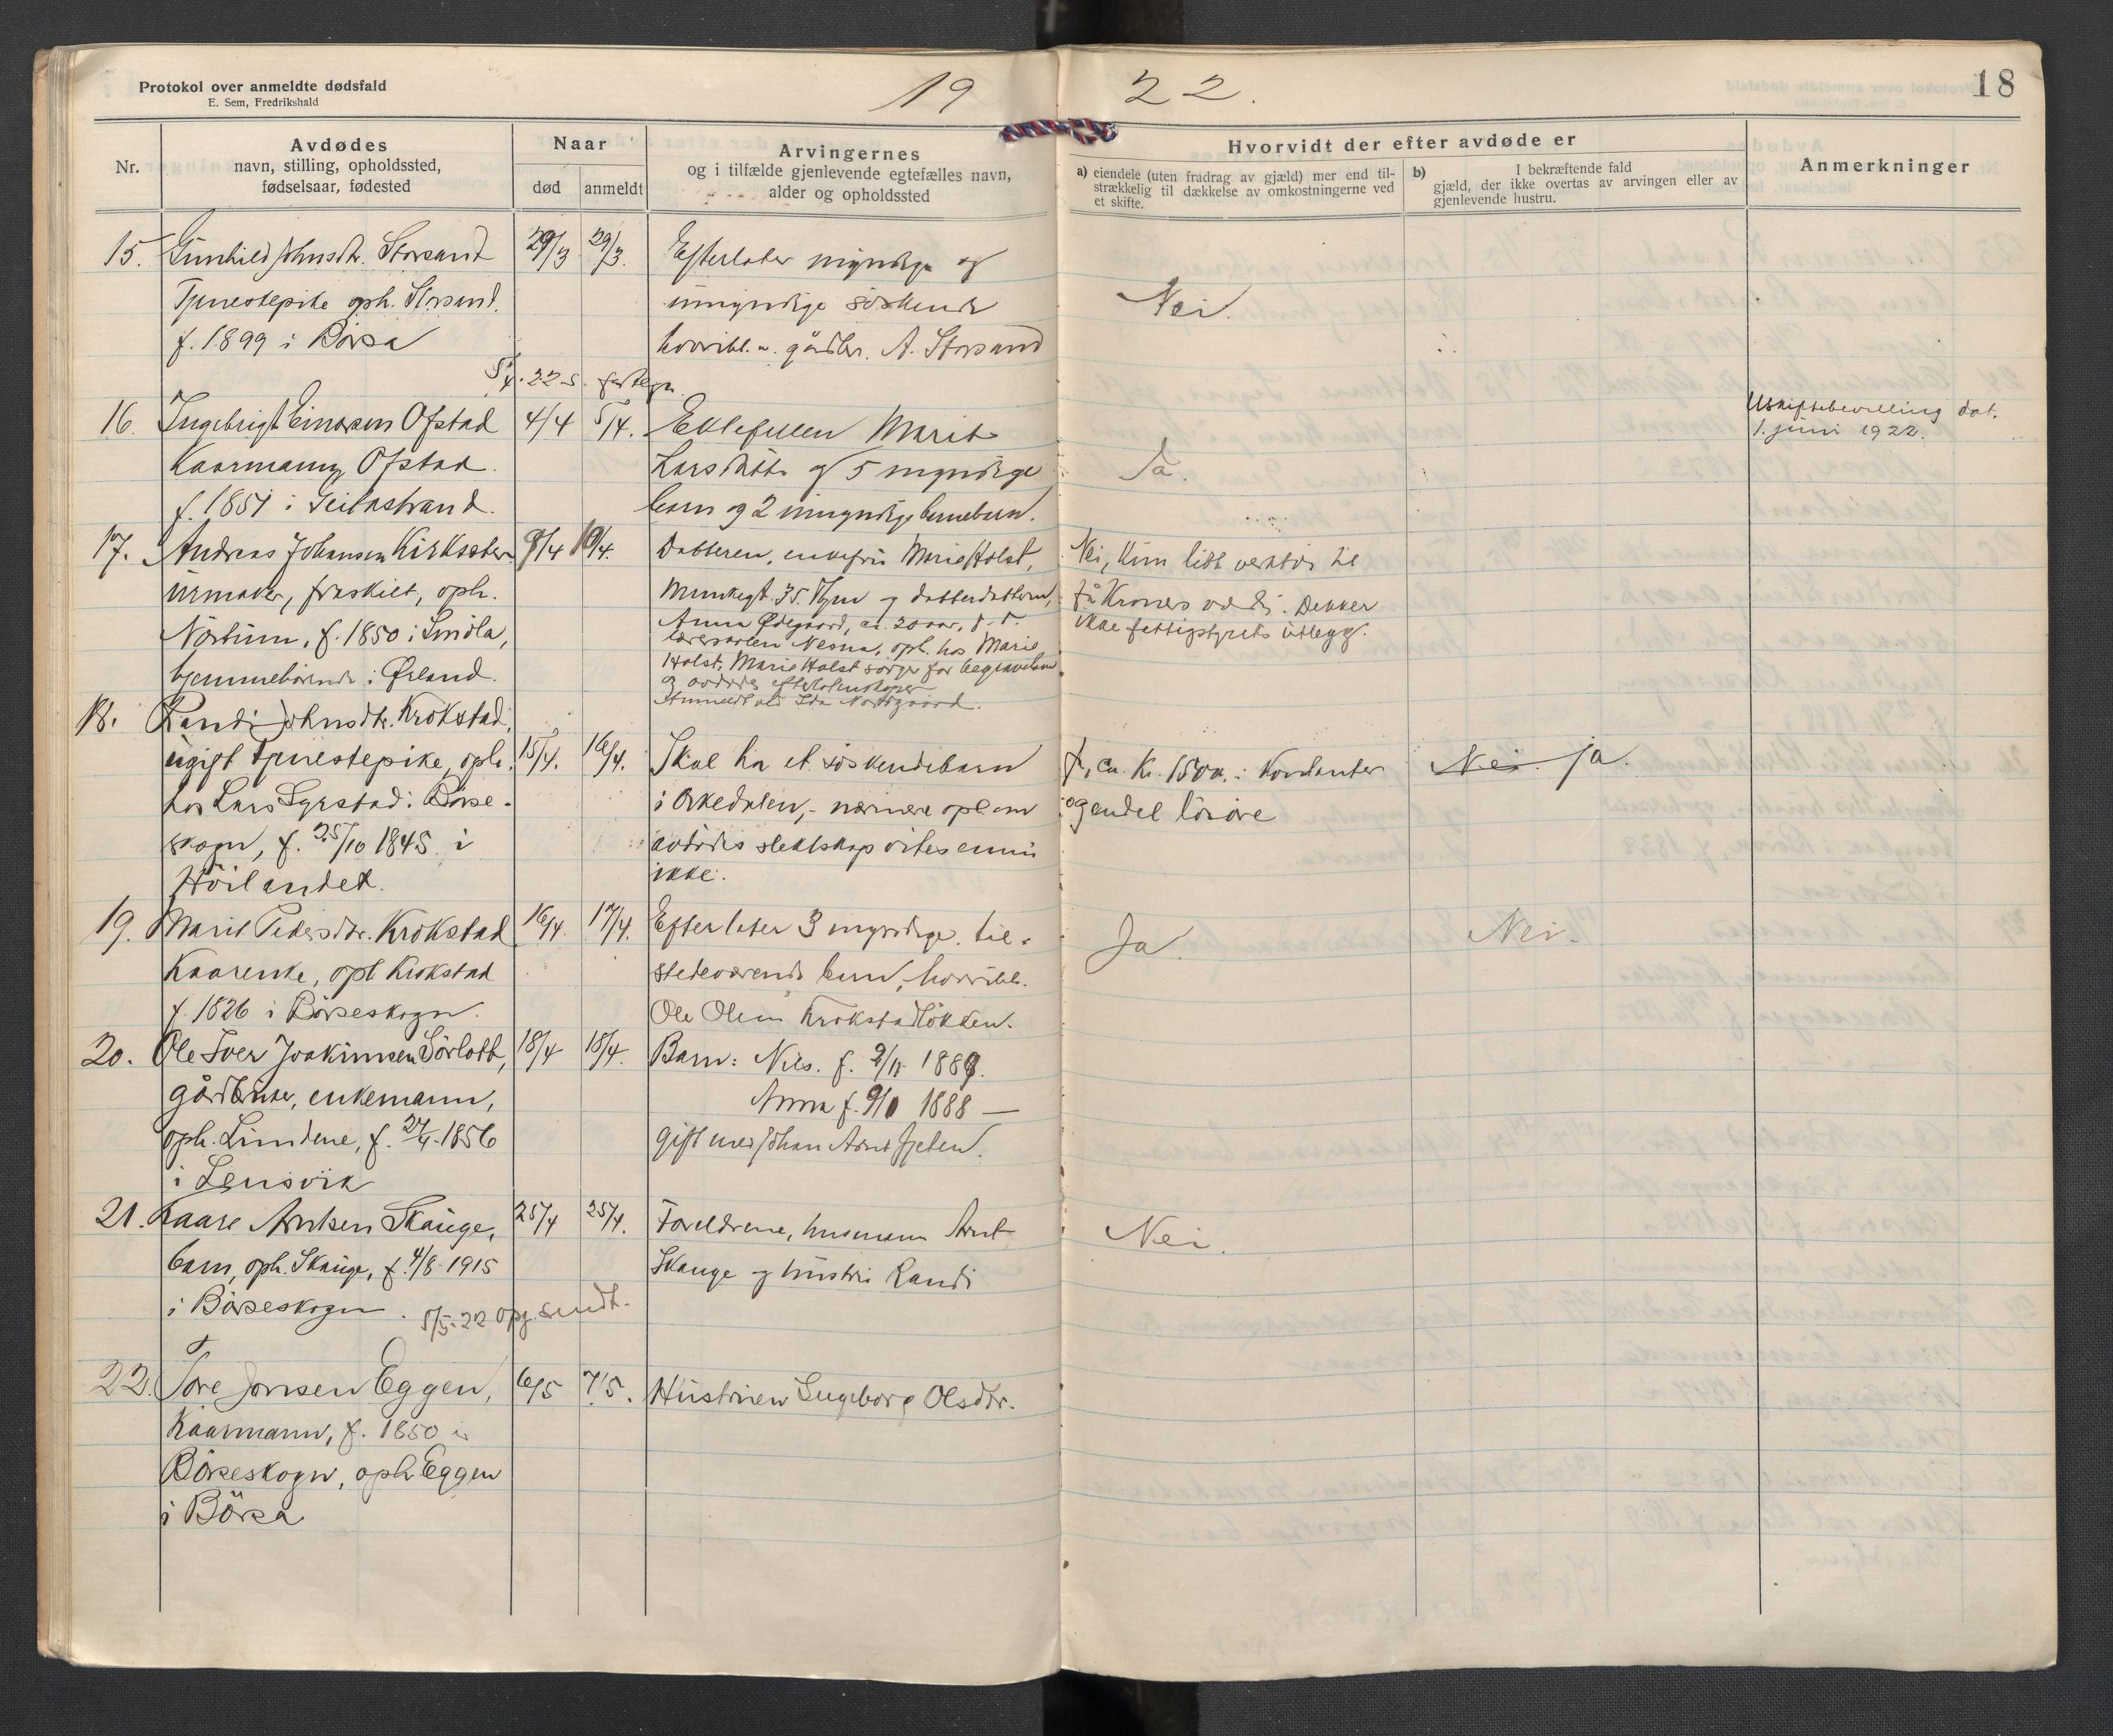 Protokol over anmeldte dødsfald
E. Sem, Fredrikshald
19 22.
18
Nr.
Avdødes
navn, stilling, opholdssted,
fødselsaar, fødested
Naar
død anmeldt
Arvingernes
og i tilfælde gjenlevende egtefælles navn,
alder og opholdssted
Hvorvidt der efter avdøde er
a) eiendele (uten fradrag av gjæld) mer end til-
strækkelig til dækkelse av omkostningerne ved
et skifte.
b) I bekræftende fald
gjæld, der ikke overtas av arvingen eller av
gjenlevende hustru.
Anmerkninger
15. Gunhild Johnsdtr. Storsand 29/3 29/3. Efterlater myndige og
Tjenestepike oph. Storsand. umyndige söskende
f. 1899 i Börsa hvoribl. gårdbr. A. Storsand
Nei.
5/4.22 s.
16. Ingebrigt Einarsen Ofstad 4/4 5/4. Ektefellen Marit
Kaarmann Ofstad. Larsdatter og 5 myndige
f. 1851 i Geitastrand. barn og 2 umyndige barnebarn.
Ja.
Uskiftebevilling dat.
1. juni 1922.
17. Andreas Johansen Kirksæter 9/4 10/4. Datteren, enkefru Marie Holst,
urmaker, fraskilt, oph. Munkegt. 35. Thjem og datterdatteren,
Nortun, f. 1850 i Smöla, Anna Ødegaard, ca. 20 aar,
hjemmehörende i Ørland. Nesna, oph. hos Marie
Holst. Marie Holst sörger for begravelsen
og avdödes efterlatenskaper
Anmeldt av Ida Nordgaard.
Nei, kun litt verktöi til
få kroners verdi. Dekker
ikke fattigstyrets utlegg.
18. Randi Johnsdtr. Krokstad,
ugift tjenestepike, oph. 15/4. 16/4. Skal ha et söskendebarn
hos Lars Syrstad i Börse- i Orkedalen, - nærmere opl. om
skogn, f. 25/10 1845 i avdödes slektskap vites ennu
Höilandet. ikke.
ca. Kr. 1500. i kontanter
og endel lösöre
Nei. ja.
19. Marit Pedersdtr. Krokstad 16/4. 17/4. Efterlater 3 myndige til-
Kaarenke, oph Krokstad stedeværende barn, hvoribl.
f. 1826 i Börseskogn. Ole Olsen Krokstadlökken.
Ja. Nei.
20. Ole Iver Joakimsen Sörlott, 18/4 18/4. Barn: Nils. f. 1889.
gårdbruker, enkemann, Anna f. 1888 —
oph. Lindene, f. 24/4 1856 gift med Johan Arnt Gjeten.
i Lensvik
21. Kaare Arntsen Skauge, 25/4 25/4. Foreldrene, husmann Arnt
barn, oph. Skauge, f. 4/8 1915 Skauge og hustru Randi
i Börseskogn.
Nei.
5/5.22 opg. sendt.
22. Tore Jonsen Eggen, 6/5 7/5. Hustruen Ingeborg Olsdtr.
Kaarmann, f. 1850 i
Börseskogn, oph. Eggen
i Börsa